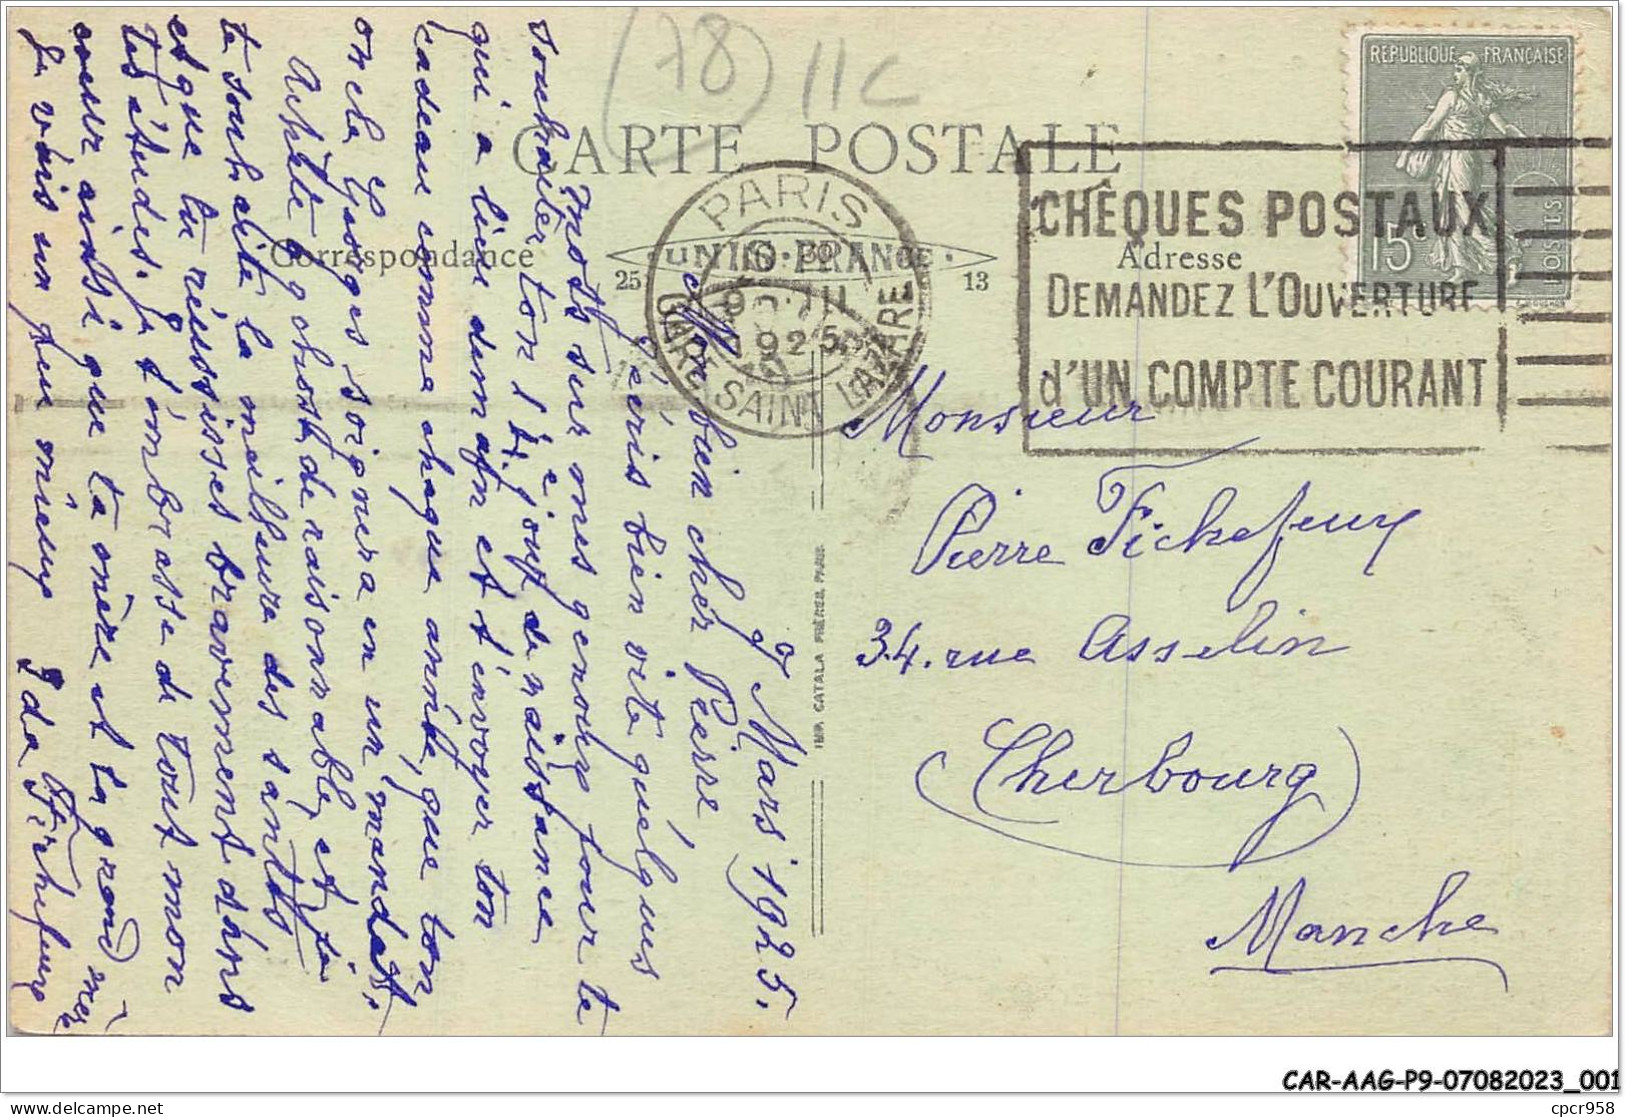 (78) 11C
CARTE POSTALE
Correspondance
UNION-FRANCE
25
13
Adresse
REPUBLIQUE FRANÇAISE
15c
POSTES
PARIS
GARE SAINT LAZARE
1925
CHÈQUES POSTAUX
DEMANDEZ L'OUVERTURE
d'UN COMPTE COURANT
IMP. CATALA FRÈRES, PARIS
9 Mars 1925.
Mon bien cher Pierre
J'écris bien vite quelques
mots sur mes genoux pour te
souhaiter ton jour de naissance
qui a lieu demain et t'envoyer ton
cadeau comme chaque année, que ton
oncle Georges soignera en un mandat.
Achète q. chose de raisonnable, et je
te souhaite la meilleure des santés
et que tu réussisses bravement dans
tes études. Je t'embrasse de tout mon
coeur ainsi que ta mère et ta grand mère
Je vais un peu mieux Ida Fichefeux
Monsieur
Pierre Fichefeux
34. rue Asselin
(Cherbourg)
Manche
CAR-AAG-P9-07082023_001
cpcr958